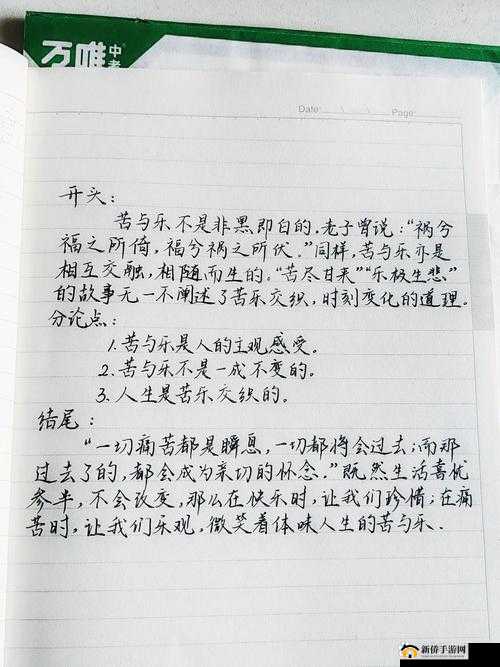 万唯中考
Date: Page:
开头：
苦与乐不是非黑即白的，老子曾说：“祸兮
福之所倚，福兮祸之所伏。”同样，苦与乐亦是
相互交融，相随而生的，“苦尽甘来”“乐极生悲”
的故事无一不阐述了苦乐交织，时刻变化的道理。
分论点：
1.苦与乐是人的主观感受。
2.苦与乐不是一成不变的。
3.人生是苦乐交织的。
结尾：
“一切痛苦都是瞬息，一切都将会过去；而那
过去了的，都会成为亲切的怀念。”既然生活喜忧
参半，不会改变，那么在快乐时，让我们珍惜；在痛
苦时，让我们乐观，微笑着体味人生的苦与乐．
新侨手游网